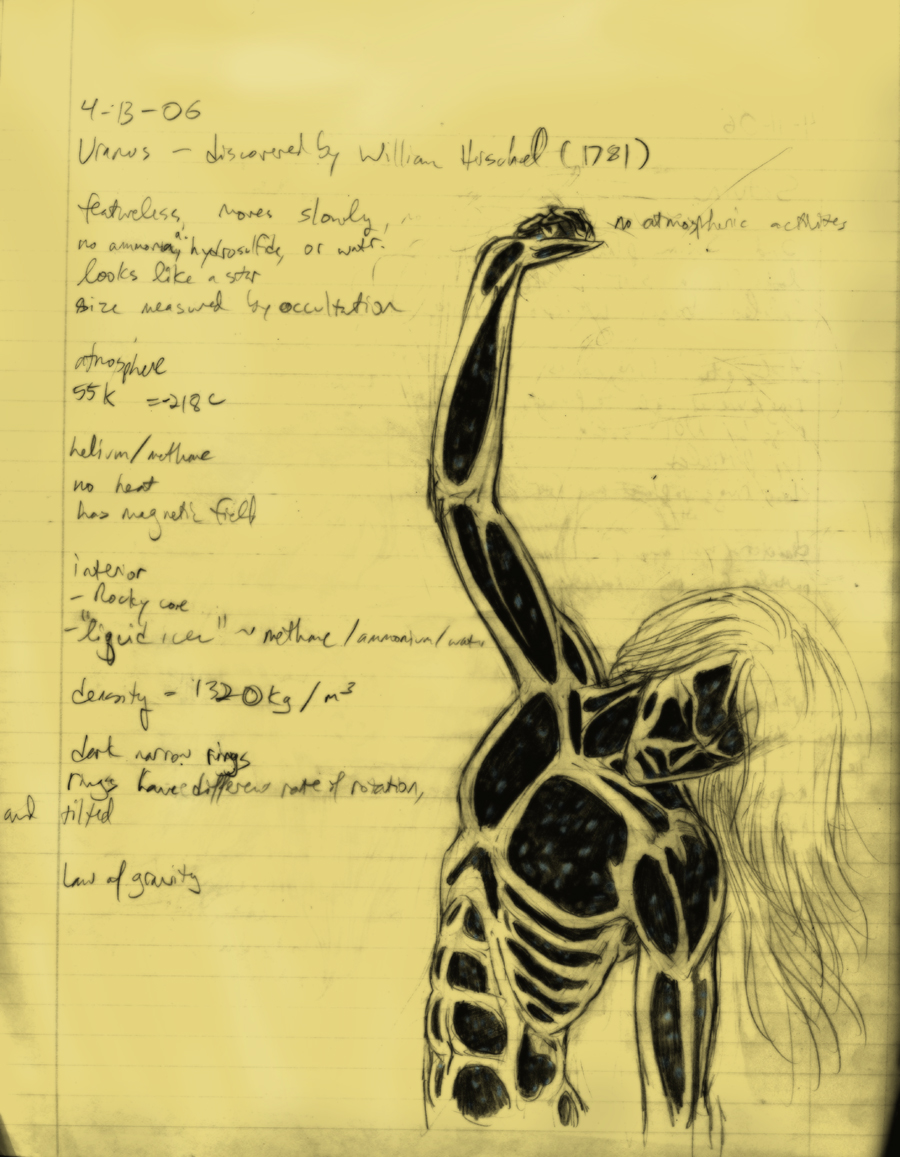 4-13-06
Uranus - discovered by William Herschel (1781)
featureless, moves slowly,
no atmospheric activities
no ammonia, hydrosulfide, or water.
looks like a star
size measured by occultation
atmosphere
55K =-218C
helium/methane
no heat
has magnetic field
interior
- Rocky core
- "liquid ices" ~ methane/ammonium/water
density - 1320 kg/m³
dark narrow rings
rings have different rate of rotation,
and tilted
Law of gravity